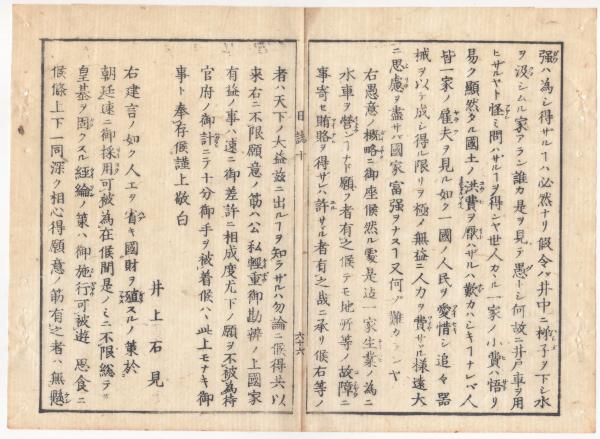 强ハ為シ得サルヿハ必然ナリ假令ハ井中ニ梯子ヲ下シ水
ヲ汲シムル家アラン誰カ是ヲ見テ愚トシ何故ニ井戸車ヲ用
ヒサルヤト怪ミ問ハサルヿヲ得ンヤ世人カヽル一家ノ小費ハ悟リ
易ク顕然タル國土ノ洪費ヲ厭ハサルハ歎カハシキヿナレハ人
皆一家ノ雇夫ヲ見ル如ク一國ノ人民ヲ愛惜シ追々器
械ヲ以テ成シ得ル限リヲ極メ無益ニ人力ヲ費サヽル様遠大
ニ思慮ヲ盡サハ國家富强ヲナスヿ又何ソ難カランヤ
右愚意ノ概略ニ御座候然ル處是迠一家生業ノ為ニ
水車ヲ營ンヿナト願フ者有之候テモ地所等ノ故障ニ
事寄セ賄賂ヲ得サレハ許サヽル者有之哉ニ承リ候右等ノ
日誌十
六十六
者ハ天下ノ大益茲ニ出ルヿヲ知ラサルハ勿論ニ候得共以
来右ニ不限願意ノ筋ハ公私輕重御勘辨ノ上國家
有益ノ事ハ速ニ御差許ニ相成度尤下ノ願ヲ不被為待
官府ノ御計ニテ十分御手ヲ被着候ハヽ此上モナキ御
事ト奉存候謹上敬白
井上石見
右建言ノ如ク人工ヲ省キ國財ヲ殖スルノ策於
朝廷速ニ御採用可被為在候間是ノミニ不限総テ
皇基ヲ固クスル經綸ノ策ハ御施行可被遊 思食ニ
候條上下一同深ク相心得願意ノ筋有之者ハ無懸